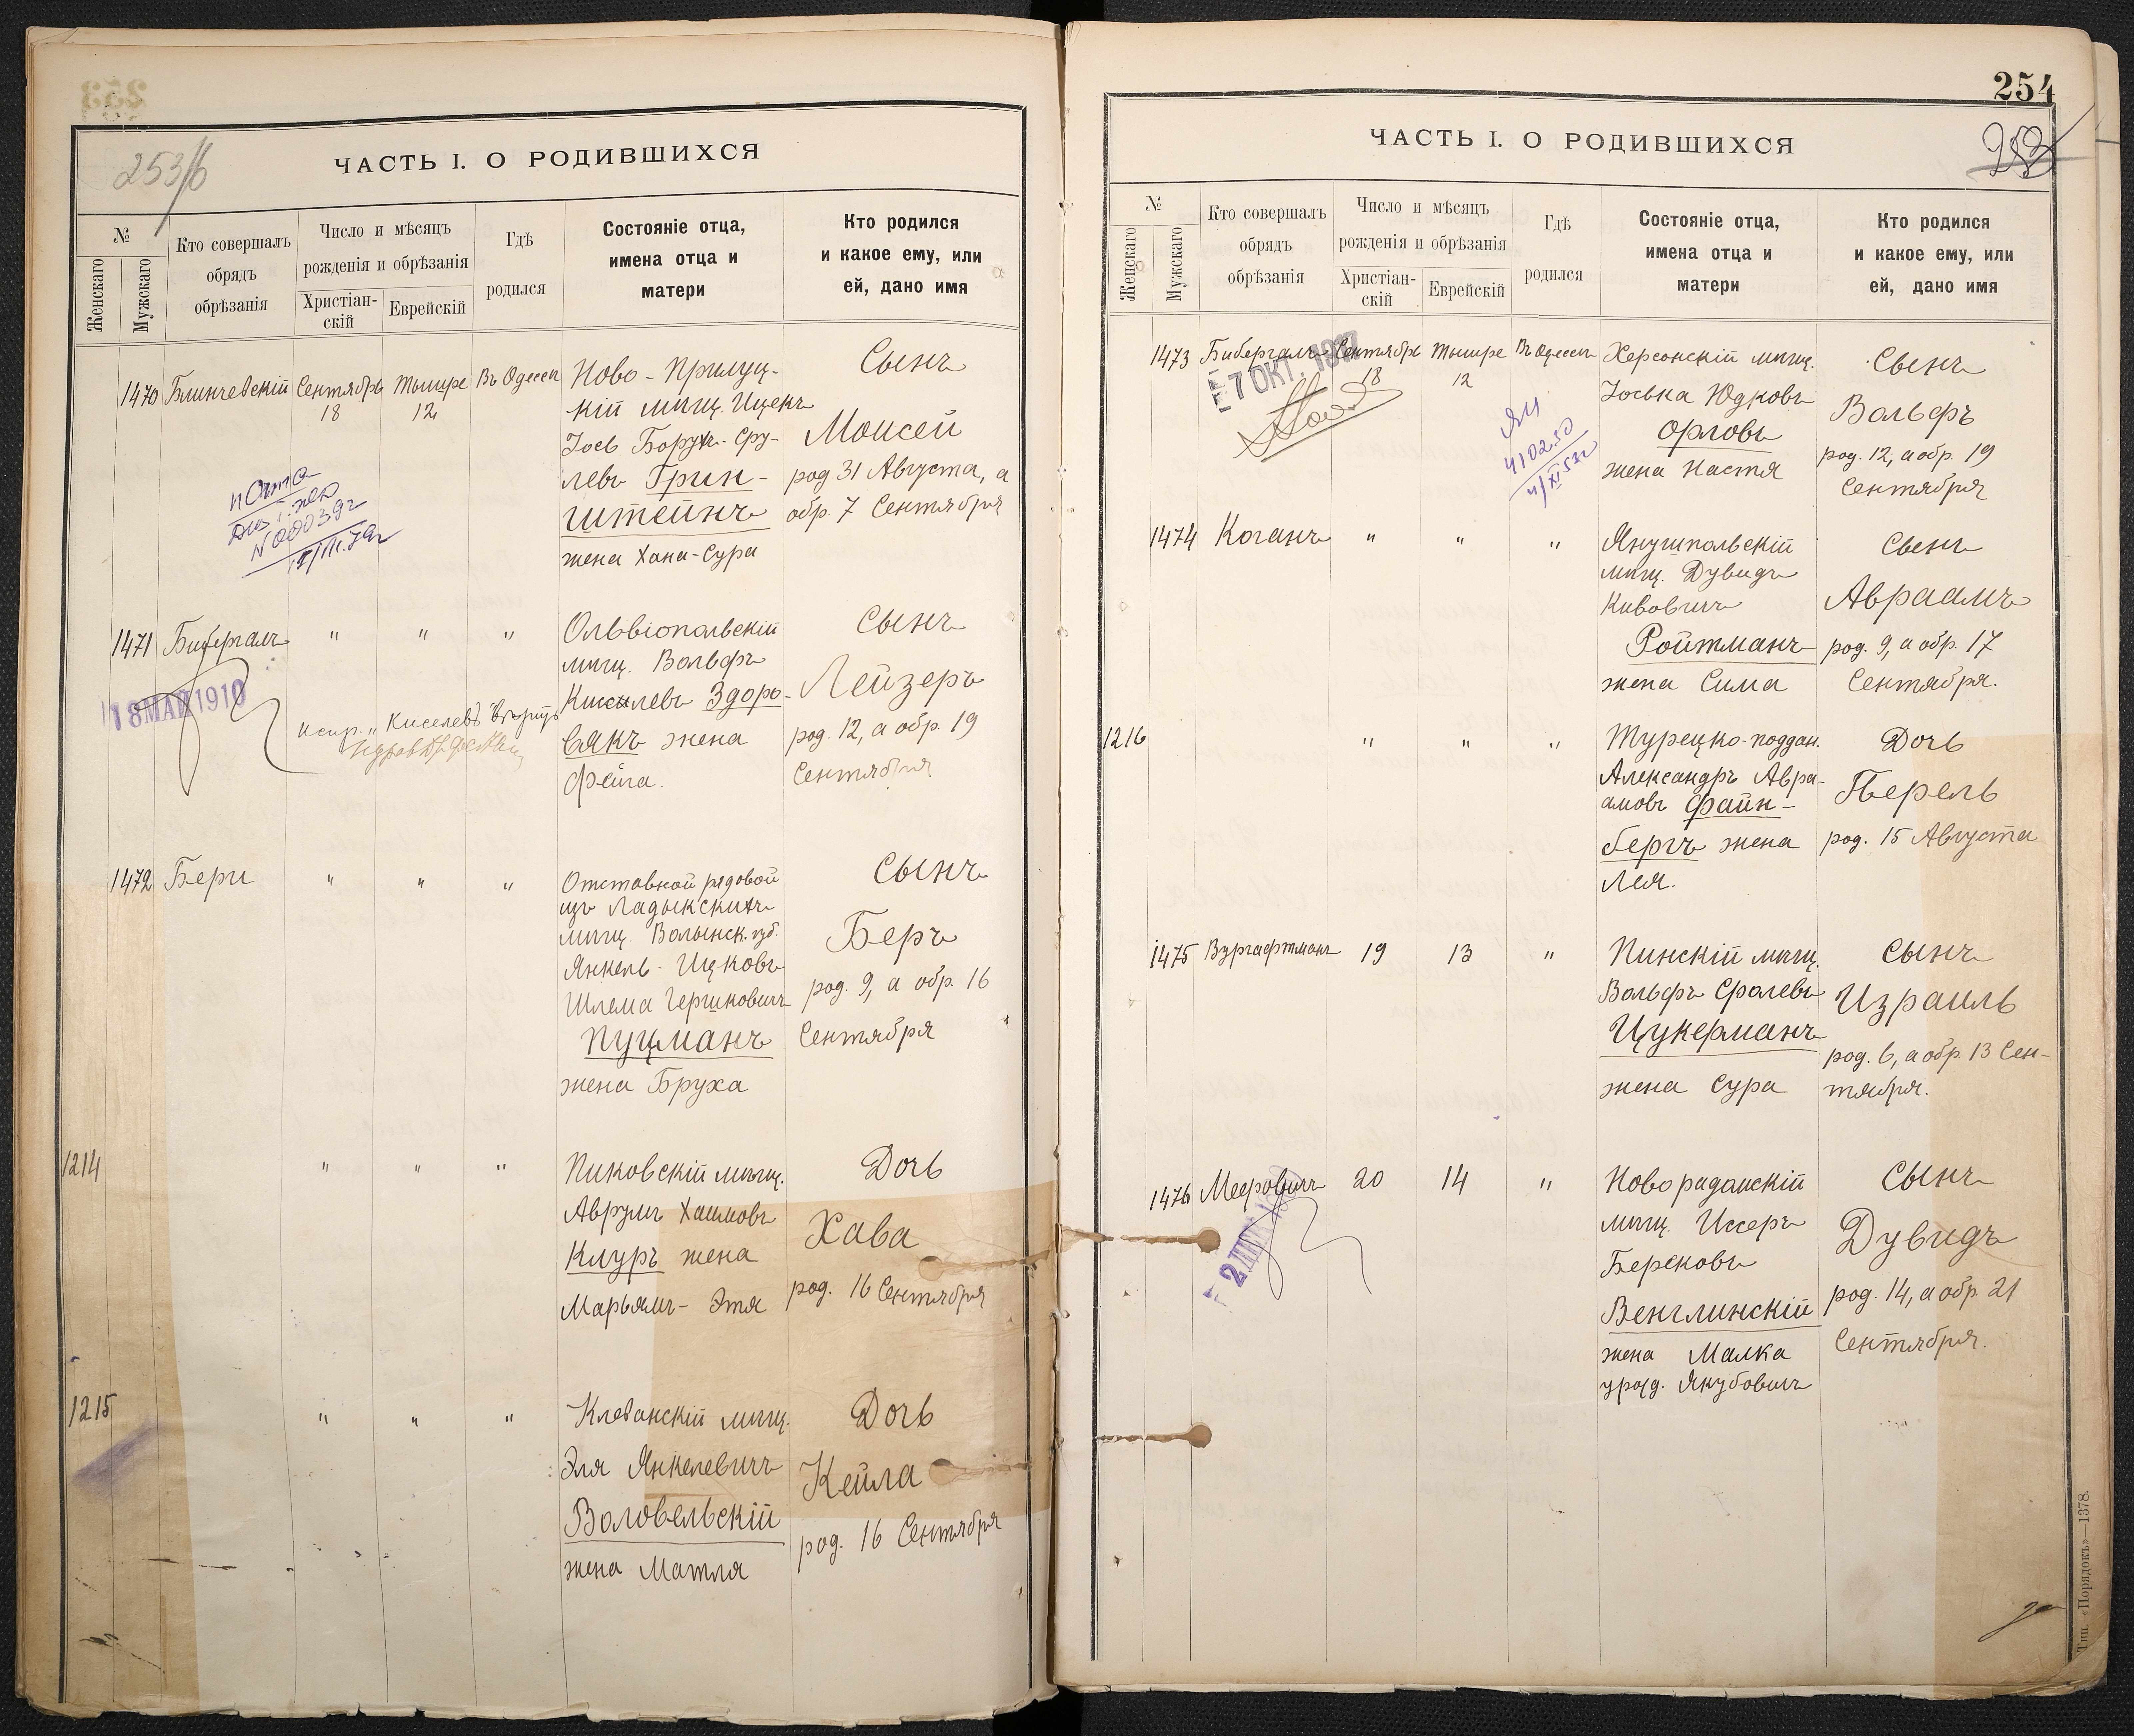 253/б
ЧАСТЬ I. О РОДИВШИХСЯ
№
Женскаго
Мужскаго
Кто совершалъ
обрядъ
обрѣзанія
Число и мѣсяцъ
рожденія и обрѣзанія
Христіан-
скій
Еврейскій
Гдѣ
родился
Состояніе отца,
имена отца и
матери
Кто родился
и какое ему, или
ей, дано имя
1470 Блинчевскій Сентябрь Тышре Въ Одессѣ
18 12
Ново-Прилуц-
кій мѣщ. Ицекъ
Іось Борухъ-Сру-
левъ Грин-
штейнъ
жена Хана-Сура
Сынъ
Моисей
род. 31 Августа, а
обр. 7 Сентября
1471 Бибергалъ " " "
18 МАЙ 1910
испр. "Киселевъ"
Ольвіопольскій
мѣщ. Вольфъ
Киселевъ Здоро-
вякъ жена
Фейга.
Сынъ
Лейзеръ
род. 12, а обр. 19
Сентября
1472 Бери " " "
Отставной рядовой
изъ Ладыкскихъ
мѣщ. Волынск. губ.
Янкель-Ицковъ
Шлема Гершковичъ
Пуцманъ
жена Бруха
Сынъ
Беръ
род. 9, а обр. 16
Сентября
1214 " " "
Пиковскій мѣщ.
Аврумъ Хаимовъ
Клуръ жена
Марьямъ-Этя
Дочь
Хава
род. 16 Сентября
1215 " " "
Клеванскій мѣщ.
Эля Янкелевичъ
Воловельскій
жена Матля
Дочь
Кейла
род. 16 Сентября
254
253
ЧАСТЬ I. О РОДИВШИХСЯ
№
Женскаго
Мужскаго
Кто совершалъ
обрядъ
обрѣзанія
Число и мѣсяцъ
рожденія и обрѣзанія
Христіан-
скій
Еврейскій
Гдѣ
родился
Состояніе отца,
имена отца и
матери
Кто родился
и какое ему, или
ей, дано имя
1473 Бибергалъ Сентябрь Тышре Въ Одессѣ
18 12
7 ОКТ.
Херсонскій мѣщ.
Іоська Юдковъ
Орловъ
жена Настя
Сынъ
Вольфъ
род. 12, а обр. 19
Сентября
1474 Коганъ " " "
Янушпольскій
мѣщ. Дувидъ
Кивовичъ
Ройтманъ
жена Сима
Сынъ
Авраамъ
род. 9, а обр. 17
Сентября.
1216 " " "
Турецко-поддан.
Александръ Авра-
амовъ Файн-
бергъ жена
Лея.
Дочь
Перель
род. 15 Августа
1475 Вургафтманъ 19 13 "
Пинскій мѣщ.
Вольфъ Сролевъ
Цукерманъ
жена Сура
Сынъ
Израиль
род. 6, а обр. 13 Сен-
тября.
1476 Мееровичъ 20 14 "
Иово радамскій
мѣщ. Иссеръ
Берековъ
Венглинскій
жена Малка
урожд. Якубовичъ
Сынъ
Дувидъ
род. 14, а обр. 21
Сентября.
Тип. «Порядокъ»—1378.